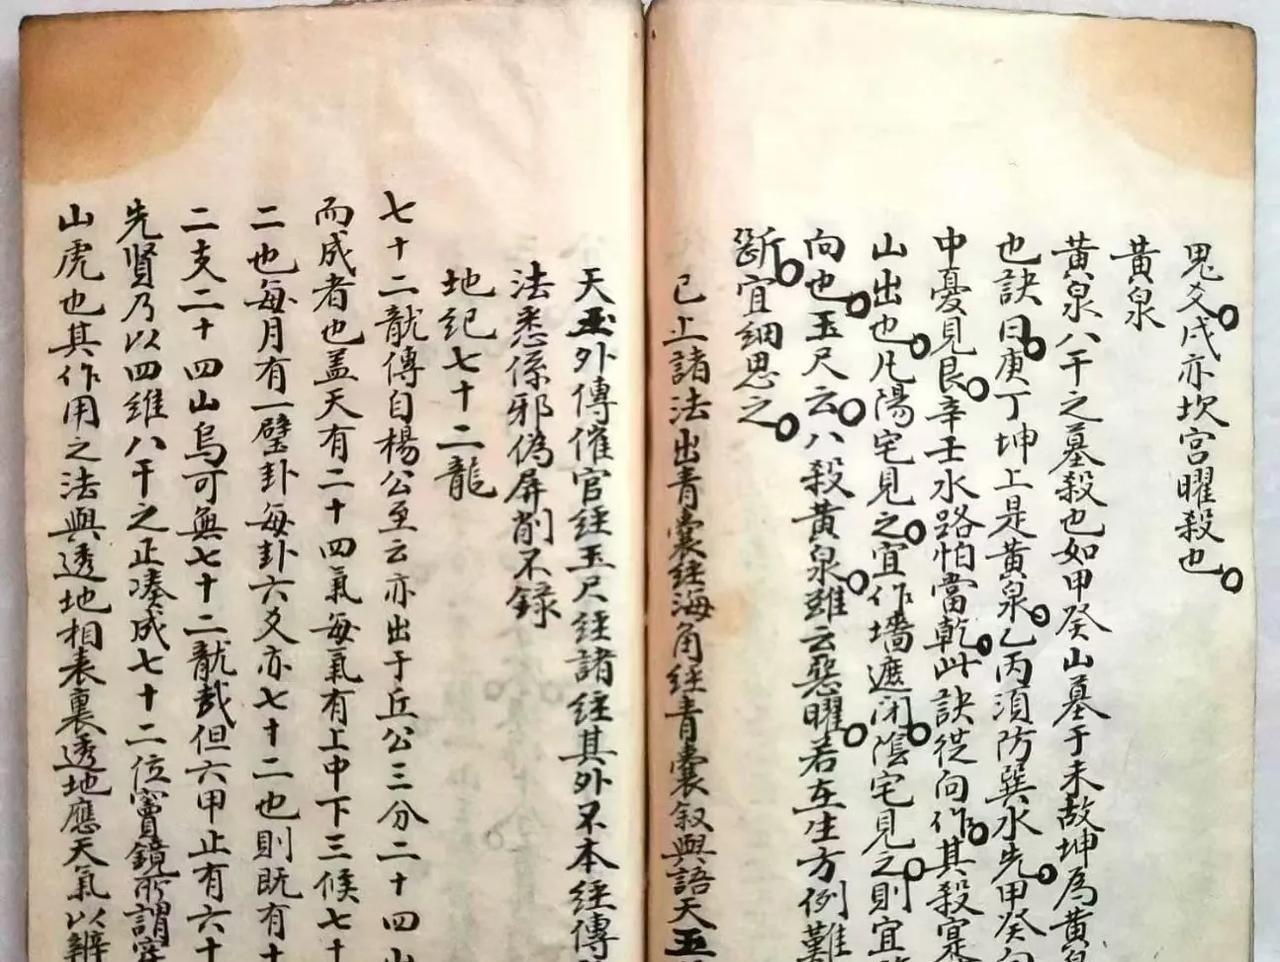 鬼爻戌亦坎宫曜殺也
黃泉
黃泉八干之墓殺也如甲癸山墓于未故坤爲黃泉
也訣曰庚丁坤上是黃泉乙丙須防巽水先甲癸向
中憂見艮辛壬水路怕當乾此訣從向作其殺寔
山出也凡陽宅見之宜作墻遮閉陰宅見之則宜
向也玉尺云八殺黃泉雖云惡曜若在生方例難
斷宜細思之
已上諸法出青囊經海角經青囊叙與語天玉
天玉外傳催官經玉尺經諸經其外不本經傳
法悉係邪偽屏削不録
地紀七十二龍
七十二龍傳自楊公至云亦出于丘公三分二十四山
而成者也盖天有二十四氣每氣有上中下三候七十
二也每月有一璧卦每卦六爻亦七十二也則既有十
二支二十四山烏可無七十二龍哉但六甲止有六十
先賢乃以四維八干之正凑成七十二位寳鏡所謂穿
山虎也其作用之法與透地相表裏透地應天氣以辨